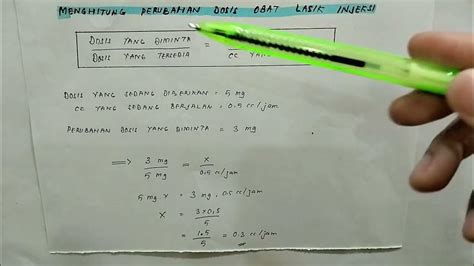 MENGHITUNG PERUBAHAN DOSIS OBAT LASIK INJEKSI
DOSIS YANG DIMINTA =
DOSIS YANG TERSEDIA CC YANG
DOSIS YANG SEDANG DIBERIKAN = 5 mg
CC YANG SEDANG BERJALAN = 0.5 cc/jam
PERUBAHAN DOSIS YANG DIMINTA = 3 mg
⟹ 3 mg / 5 mg = x / 0.5 cc/jam
5 mg x = 3 mg . 0.5 cc/jam
x = 3x0.5 / 5
= 1.5 / 5 = 0.3 cc/jam